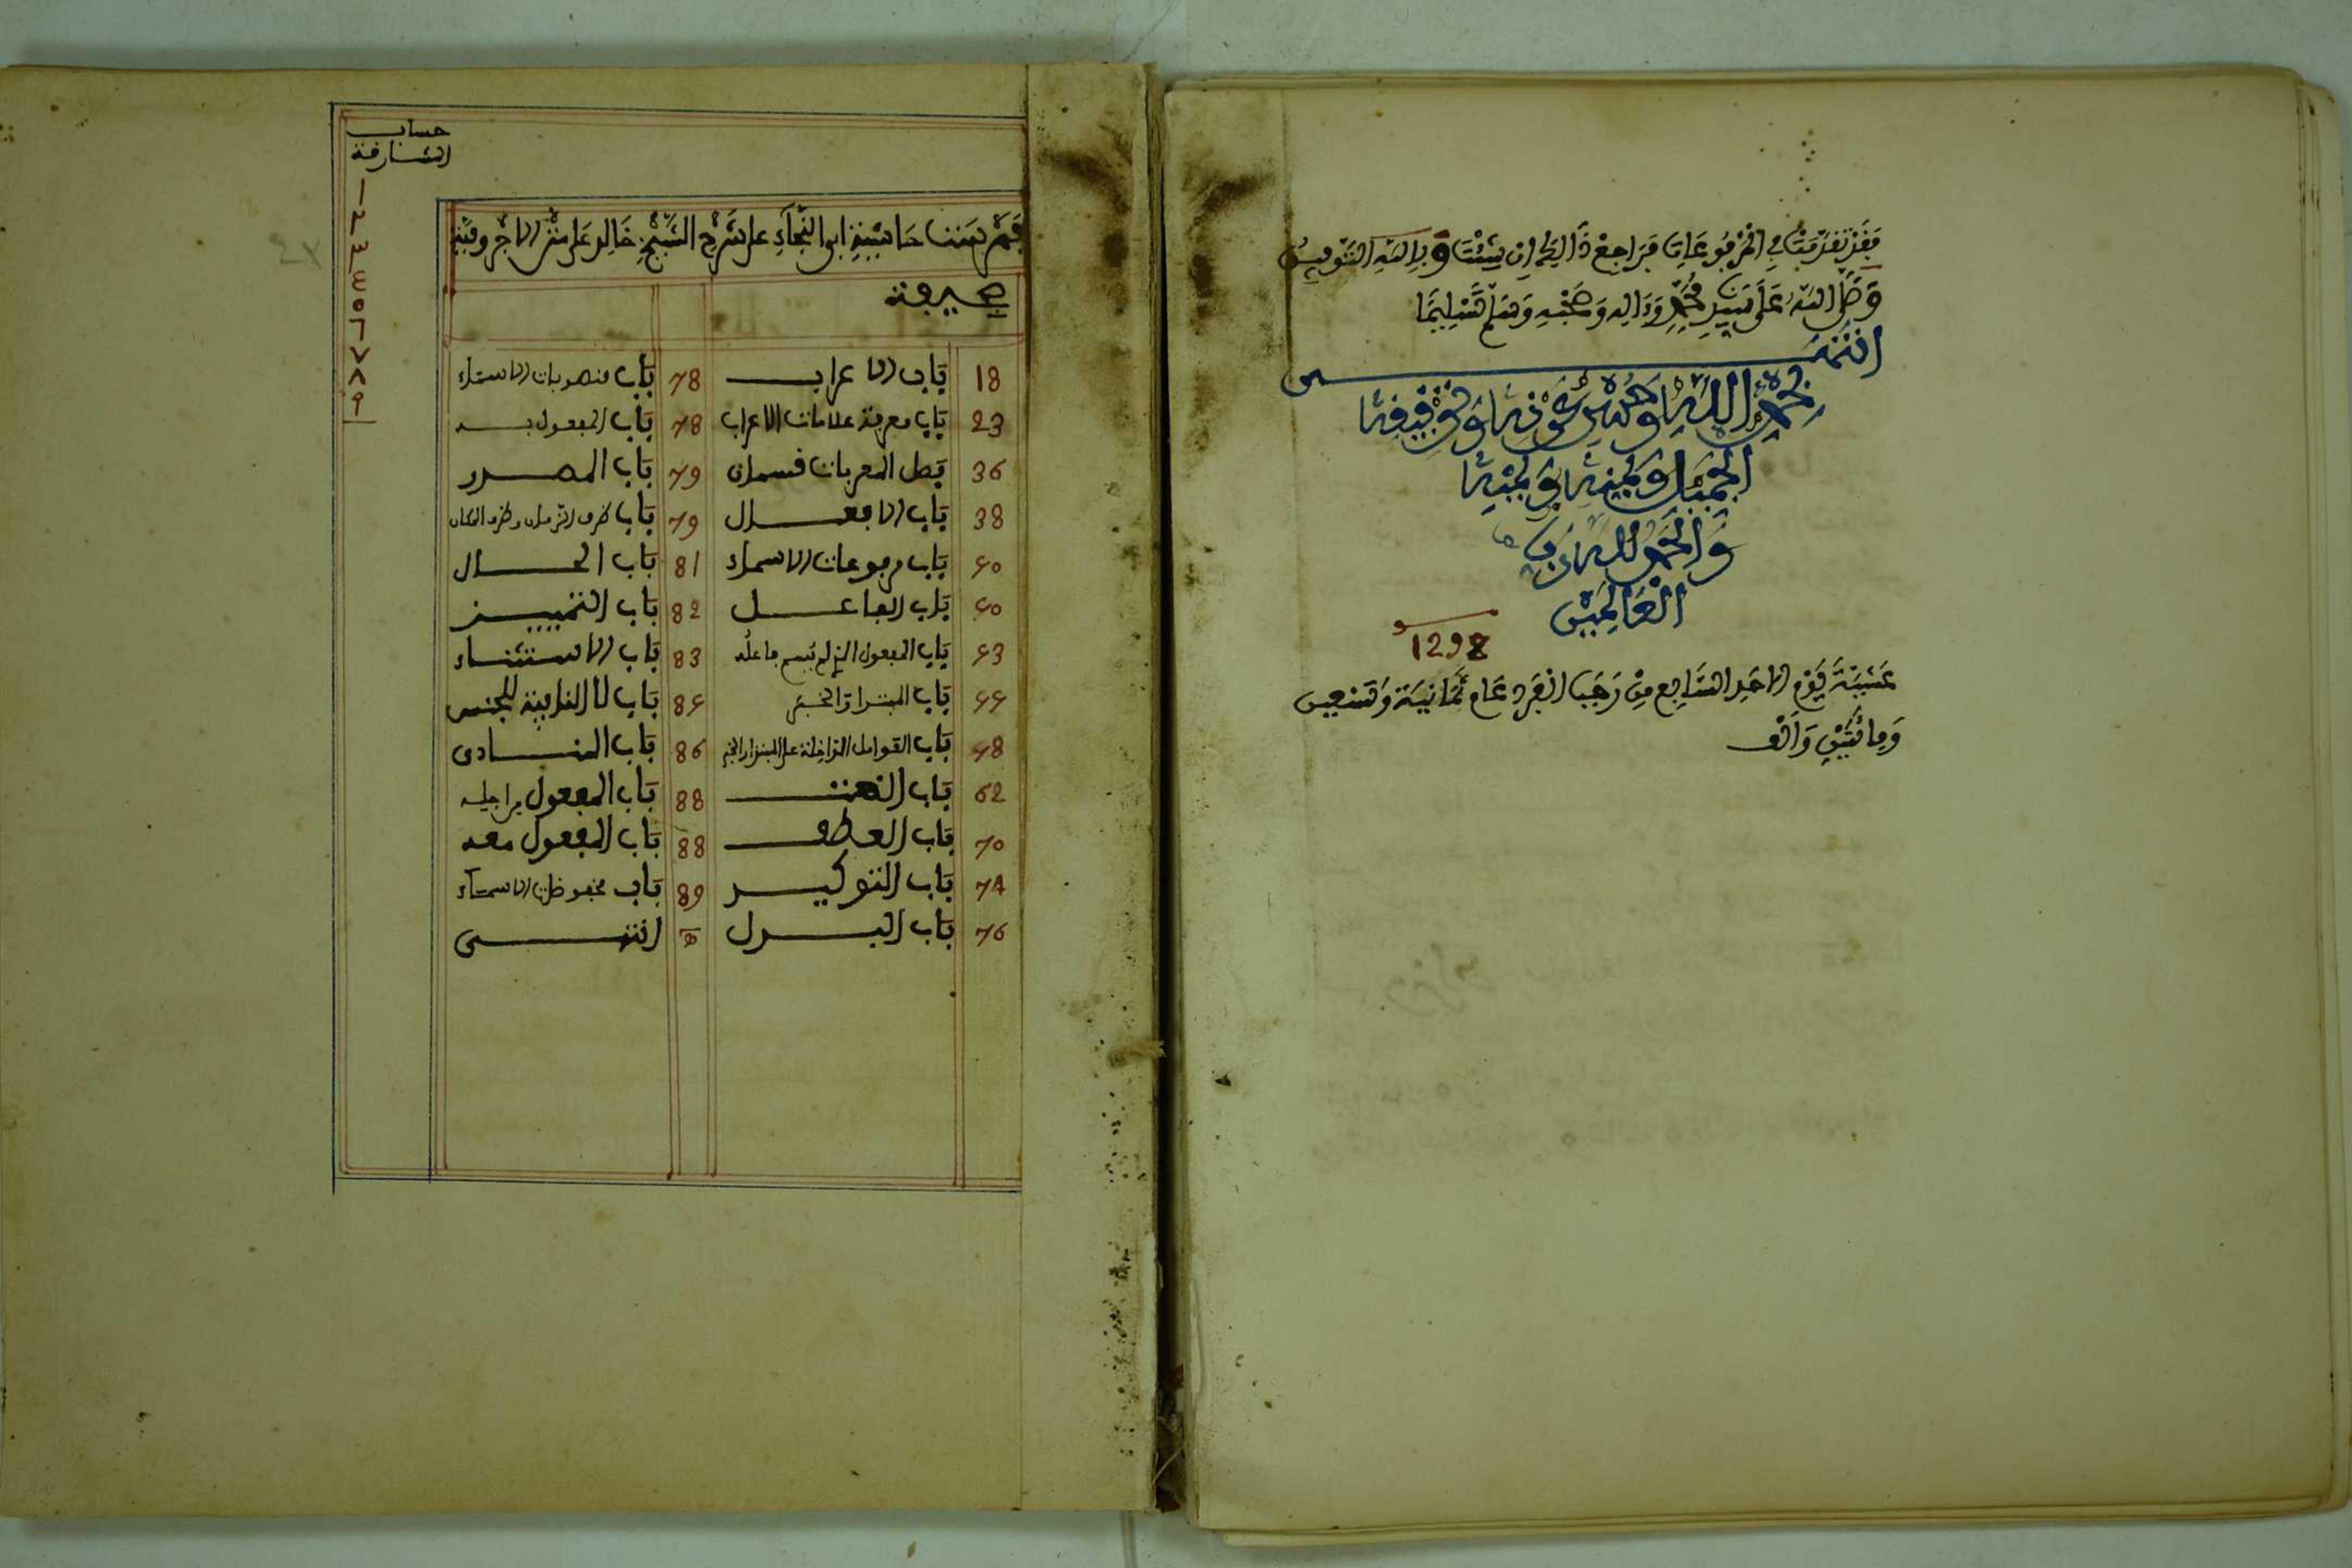 فقد تقدمت في المرفوعات فراجع ذالك ان شئت وبالله التوفيق
وصلى الله على سيدنا محمد وءاله وصحبه وسلم تسليما
انتهى
بحمد الله وحسن عونه وتوفيقه
الجميل وبمنه ويمنه
والحمد لله رب
العالمين
1298
عشية يوم الاحد السابع من رجب الفرد عام ثمانية وتسعين
ومائتين والف
حساب
المشارقة
١
٢
٣
٤
٥
٦
٧
٨
٩
فهرست حاشية ابو النجاء على شرح الشيخ خالد على متن الاجرومية
صحيفة
18 باب الاعراب 78 باب منصوبات الاسماء
23 باب معرفة علامات الاعراب 78 باب المفعول به
36 فصل المعربات قسمان 79 باب المصدر
38 باب الافعال 79 باب ظرف الزمان وظرف المكان
40 باب مرفوعات الاسماء 81 باب الحال
40 باب الفاعل 82 باب التمييز
43 باب المفعول الذي لم يسم فاعله 83 باب الاستثناء
44 باب المبتدا والخبر 84 باب لا النافية للجنس
48 باب العوامل الداخلة على المبتدا والخبر 86 باب المنادى
62 باب النعت 88 باب المفعول من اجله
70 باب العطف 88 باب المفعول معه
74 باب التوكيد 89 باب مخفوضات الاسماء
76 باب البدل انتهى